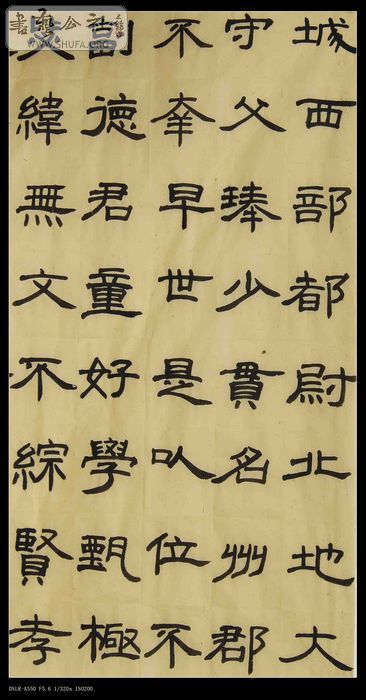 城西部都尉北地大
守父琫少貫名州郡
不幸早世是以位不
副德君童好學甄極
緯無文不綜賢孝
書藝公社
WWW.SHUFA.ORG
DSLR-A550 F5.6 1/320s ISO200